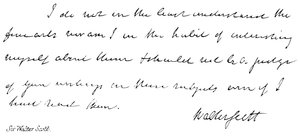 I do not in the least understand the
fine arts nor am I in the habit of interesting
myself about them & should not be a judge
of your writings on those subjects even if I
had read them.
Walter Scott
Sir Walter Scott.